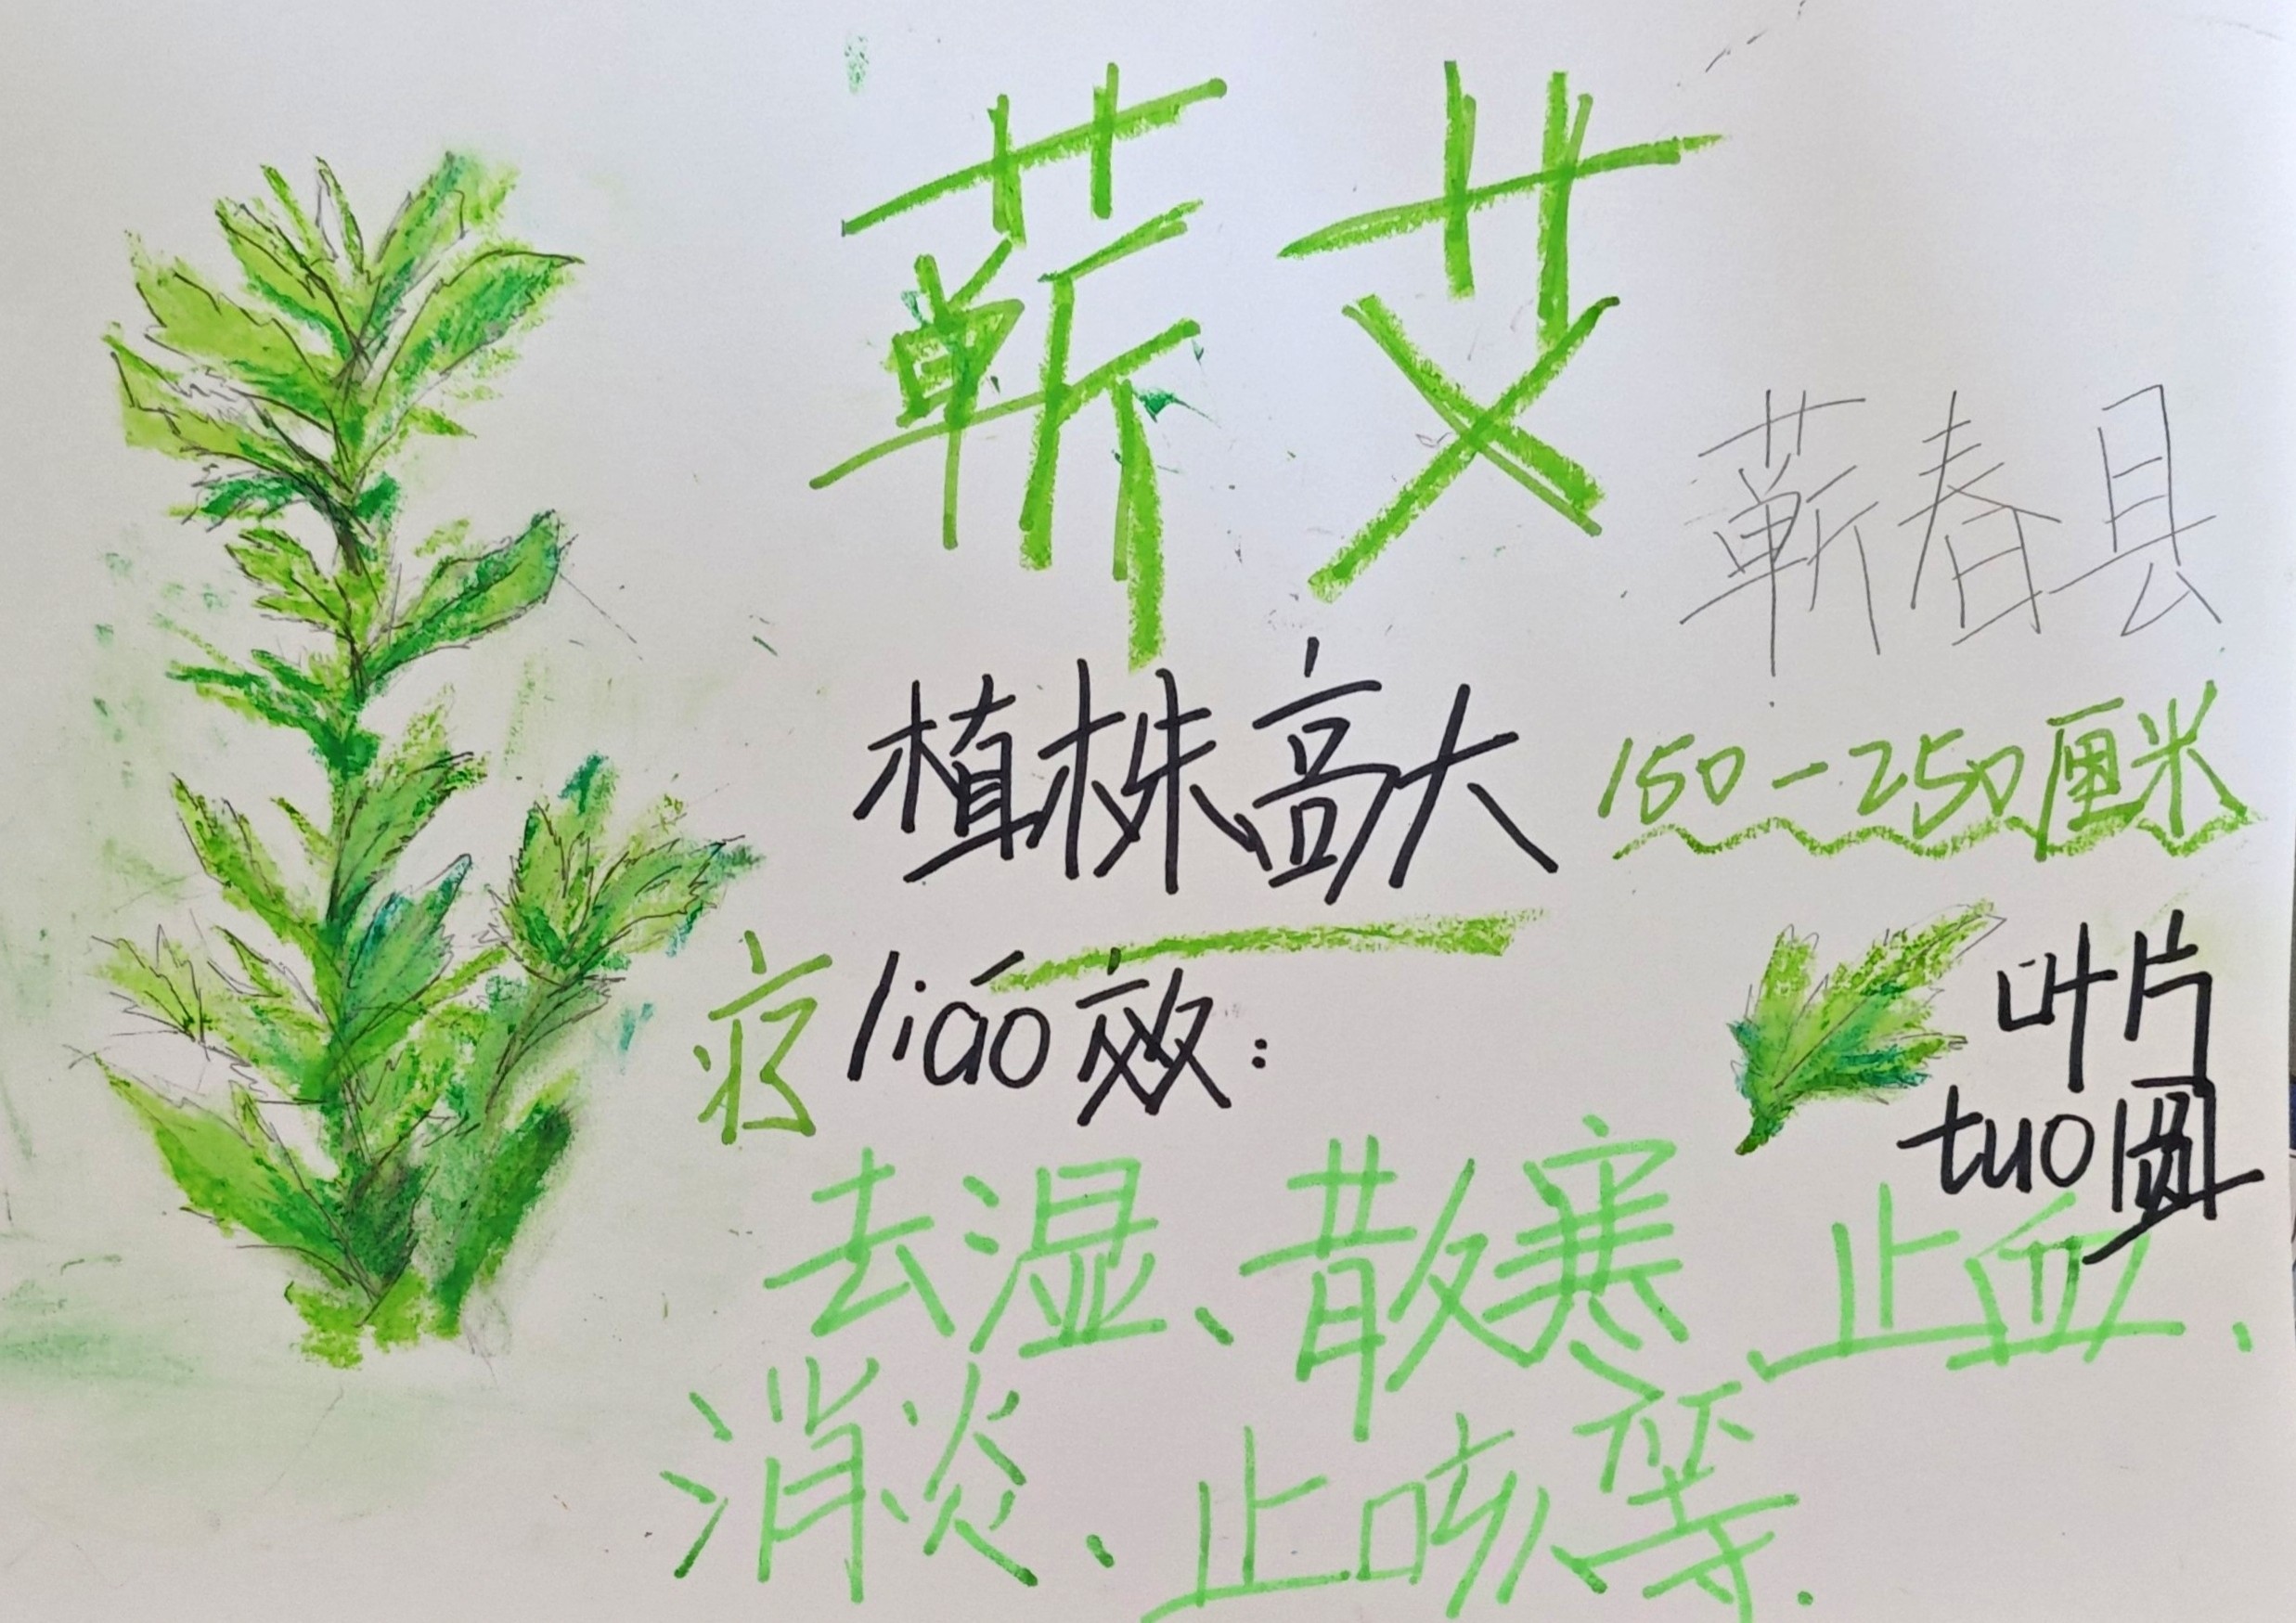 蕲艾
蕲春县
植株高大
150-250厘米
叶片
tuo圆
疗liao效:
去湿、散寒 止血、
消炎、止咳等.